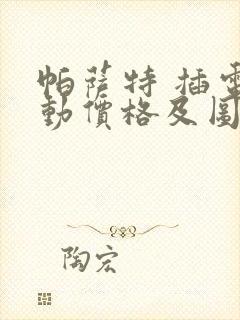 帕薩特 插電
動價格及圖
陶宏